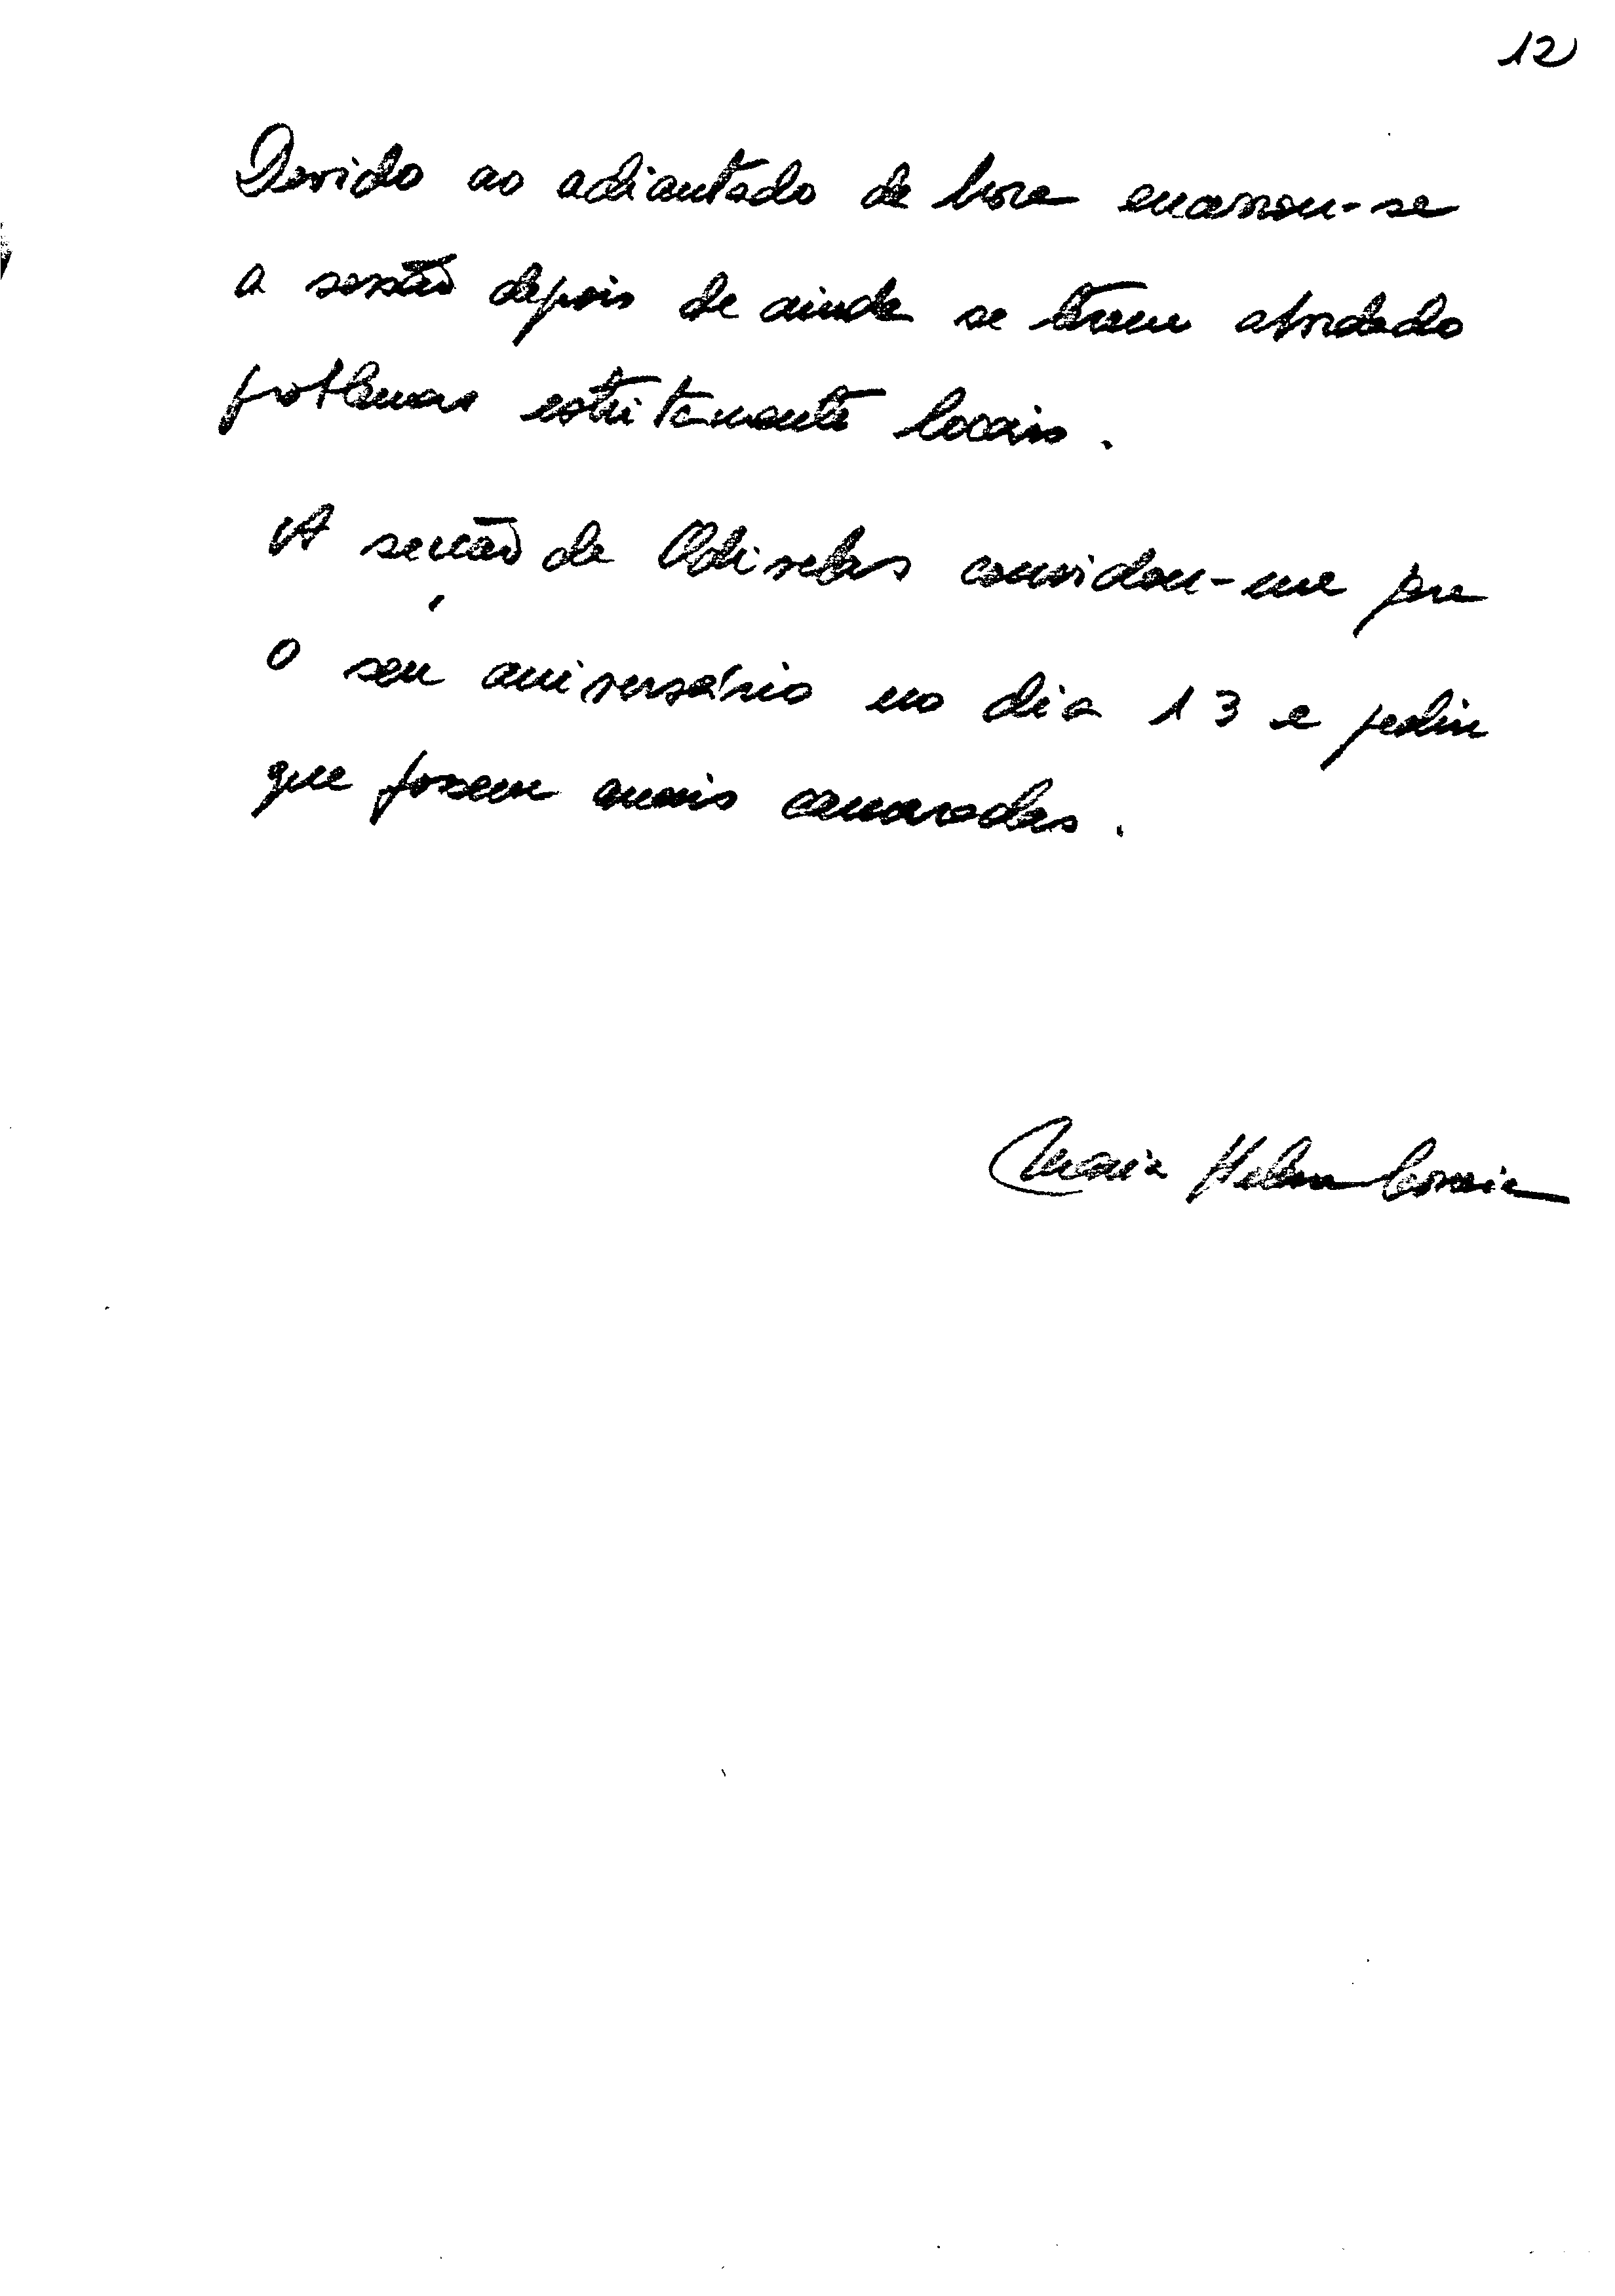 12
Devido ao adiantado da hora encerrou-se
a sessão depois de ainda se terem abordado
problemas estritamente locais.
A secção de Odivelas convidou-me para
o seu aniversário no dia 13 e pediu
que fossem mais camaradas.
Maria Helena Correia